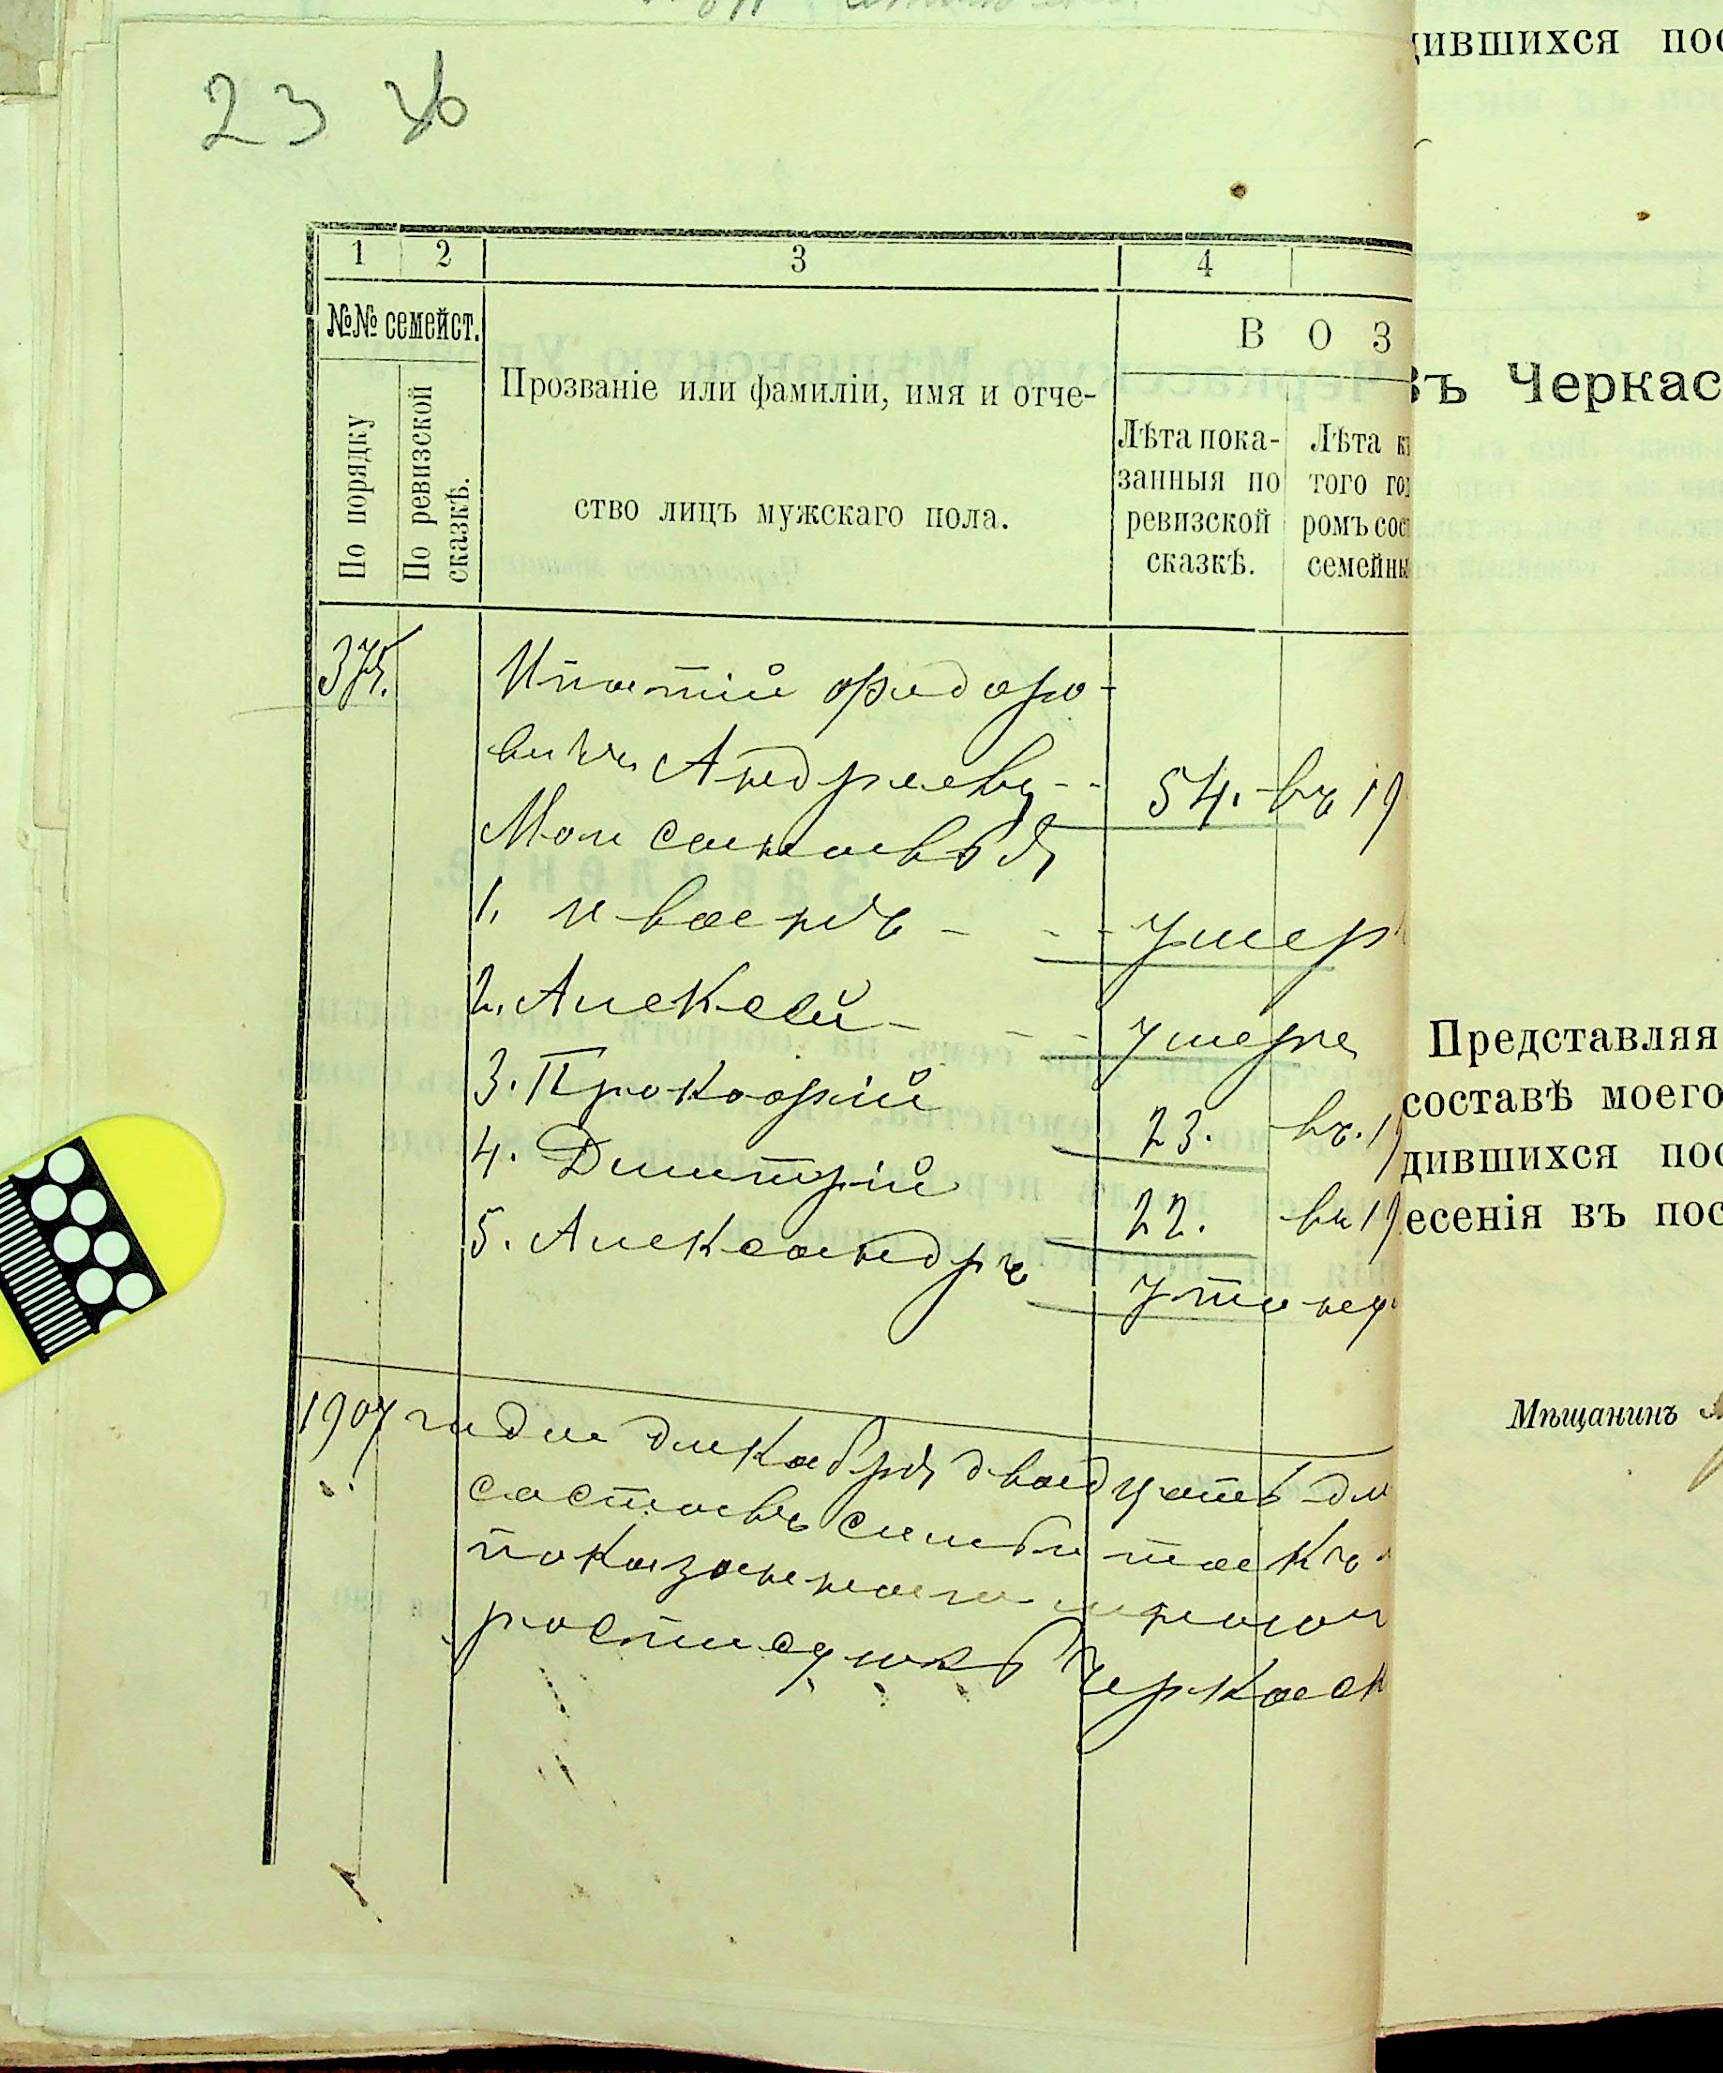 23 зв
1 2 3 4
№№ семейст.
По порядку
По ревизской
сказкѣ.
Прозваніе или фамиліи, имя и отче-
ство лицъ мужскаго пола.
В О З
Лѣта пока-
занныя по
ревизской
сказкѣ.
Лѣта къ
того го
ромъ сос
семейны
375. Ипатій Федоро-
вичъ Андреевъ -- 54. въ 19
Мои сыновья
1. Иванъ - - - умер
2. Алексей - - - умеръ
3. Прокофій 23. въ. 19
4. Димитрій 22. въ 19
5. Александръ утону
1907 года декабря двадцать д
составъ семьи такъ
показаннаго мною
ростисуюсь Черкаск
дившихся пос
въ Черкас
Представляя
составѣ моего
дившихся пос
есенія въ пос
Мѣщанинъ